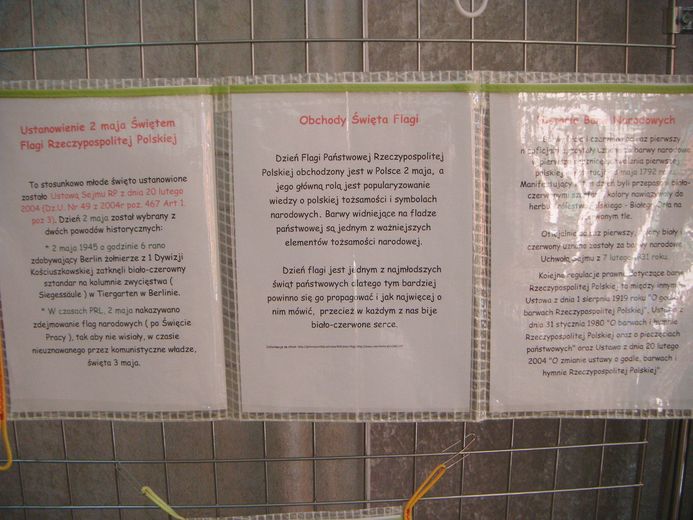 Ustanowienie 2 maja Świętem
Flagi Rzeczypospolitej Polskiej
To stosunkowo młode święto ustanowione
zostało Ustawą Sejmu RP z dnia 20 lutego
2004 (Dz.U. Nr 49 z 2004r poz. 467 Art 1.
poz 3). Dzień 2 maja został wybrany z
dwóch powodów historycznych:
* 2 maja 1945 o godzinie 6 rano
zdobywający Berlin żołnierze z 1 Dywizji
Kościuszkowskiej zatknęli biało-czerowny
sztandar na kolumnie zwycięstwa (
Siegessäule ) w Tiergarten w Berlinie.
* W czasach PRL, 2 maja nakazywano
zdejmowanie flag narodowych ( po Święcie
Pracy ), tak aby nie wisiały, w czasie
nieuznawanego przez komunistyczne władze,
święta 3 maja.
Obchody Święta Flagi
Dzień Flagi Państwowej Rzeczypospolitej
Polskiej obchodzony jest w Polsce 2 maja, a
jego główną rolą jest popularyzowanie
wiedzy o polskiej tożsamości i symbolach
narodowych. Barwy widniejące na fladze
państwowej są jednym z ważniejszych
elementów tożsamości narodowej.
Dzień flagi jest jednym z najmłodszych
świąt państwowych dlatego tym bardziej
powinno się go propagować i jak najwięcej o
nim mówić, przecież w każdym z nas bije
biało-czerwone serce.
Narodowych
i czerwona raz pierwszy
uznane za barwy narodowe
pierwszą rocznicę uchwalenia pierwszej
polskiej 3 maja 1792
dzień byli przepasani biało-
czerwonymi kolory nawiązywały do
herbu Królestwa Polskiego - Białego Orła na
tle.
Oficjalnie raz pierwszy kolory biały i
czerwony uznane zostały za barwy narodowe
Uchwałą Sejmu z 7 lutego 1831 roku.
Kolejne regulacje prawne dotyczące barw
Rzeczypospolitej Polskiej, to między innymi
Ustawa z dnia 1 sierpnia 1919 roku "O godle
barwach Rzeczypospolitej Polskiej", Ustawa z
dnia 31 stycznia 1980 "O barwach i hymnie
Rzeczypospolitej Polskiej oraz o pieczęciach
państwowych" oraz Ustawa z dnia 20 lutego
2004 "O zmianie ustawy o godle, barwach i
hymnie Rzeczypospolitej Polskiej".